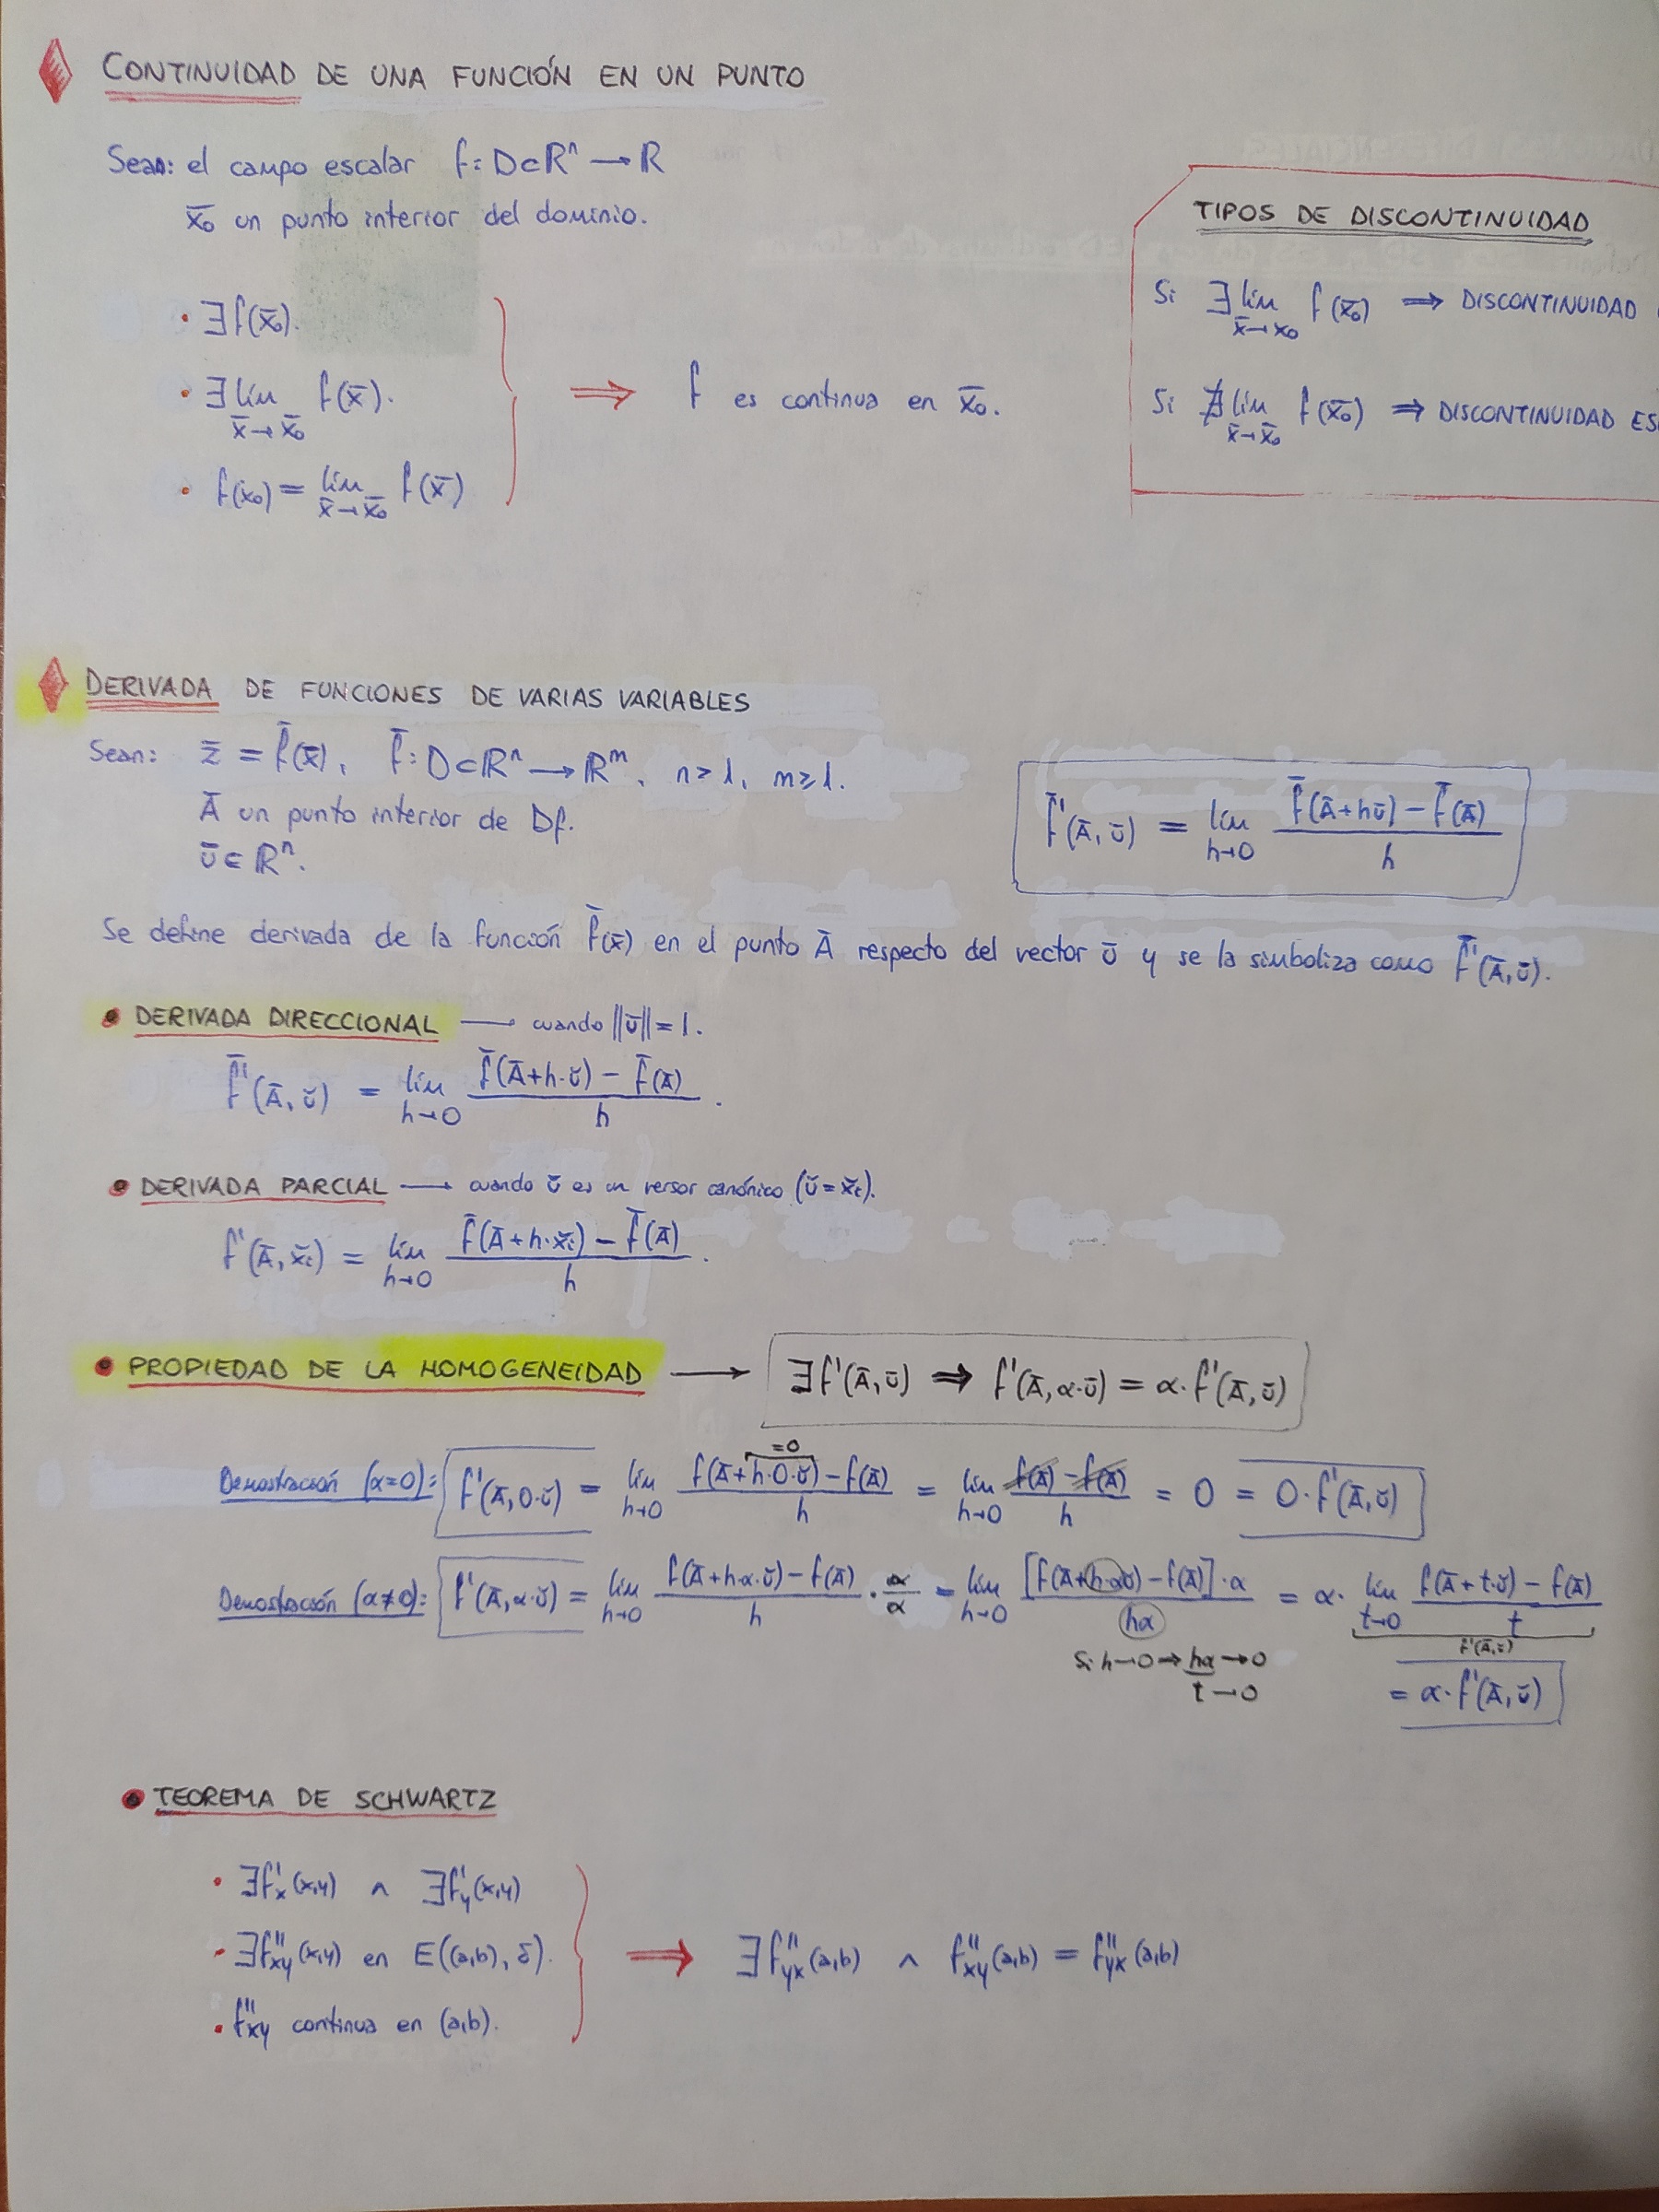 CONTINUIDAD DE UNA FUNCIÓN EN UN PUNTO
Sean: el campo escalar f: D⊂ℝⁿ → ℝ
x̄₀ un punto interior del dominio.
• ∃f(x̄₀).
• ∃ lím x̄→x̄₀ f(x̄).
• f(x₀) = lím x̄→x̄₀ f(x̄)
⟹ f es continua en x̄₀.
TIPOS DE DISCONTINUIDAD
Si ∃ lím x̄→x₀ f(x̄₀) ⟹ DISCONTINUIDAD
Si ∄ lím x̄→x̄₀ f(x̄₀) ⟹ DISCONTINUIDAD ES
DERIVADA DE FUNCIONES DE VARIAS VARIABLES
Sean: z̄ = f̄(x̄), f̄: D⊂ℝⁿ → ℝᵐ, n>1, m≥1.
Ā un punto interior de Df.
ū ∈ ℝⁿ.
f̄'(Ā,ū) = lím h→0 (f̄(Ā+hū) − f̄(Ā)) / h
Se define derivada de la función f̄(x̄) en el punto Ā respecto del vector ū y se la simboliza como f̄'(Ā,ū).
• DERIVADA DIRECCIONAL → cuando ||ŭ|| = 1.
f̄'(Ā,ŭ) = lím h→0 (f̄(Ā+h·ŭ) − f̄(Ā)) / h .
• DERIVADA PARCIAL → cuando ŭ es un versor canónico (ŭ = x̆ᵢ).
f'(Ā,x̆ᵢ) = lím h→0 (f̄(Ā+h·x̆ᵢ) − f̄(Ā)) / h .
• PROPIEDAD DE LA HOMOGENEIDAD → ∃f'(Ā,ū) ⟹ f'(Ā,α·ū) = α·f'(Ā,ū)
=0
Demostración (α=0): f'(Ā,0·ŭ) = lím h→0 (f(Ā+h·0·ŭ) − f(Ā)) / h = lím h→0 (f(Ā) − f(Ā)) / h = 0 = 0·f'(Ā,ŭ)
Demostración (α≠0): f'(Ā,α·ŭ) = lím h→0 (f(Ā+h·α·ŭ) − f(Ā)) / h · α/α = lím h→0 [f(Ā+h·αŭ) − f(Ā)]·α / hα = α· lím t→0 (f(Ā+t·ŭ) − f(Ā)) / t
Si h→0 ⟹ hα→0
t→0
f'(Ā,ŭ)
= α·f'(Ā,ŭ)
• TEOREMA DE SCHWARTZ
• ∃f'x(x,y) ∧ ∃f'y(x,y)
• ∃f''xy(x,y) en E((a,b),δ).
• f''xy continua en (a,b).
⟹ ∃f''yx(a,b) ∧ f''xy(a,b) = f''yx(a,b)